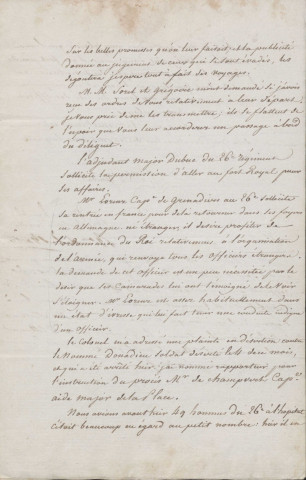 Sur les belles promesses qu'on leur faisait, et la publicité
donnée au jugement de ceux qui se sont évadés, les
dégoûtera j'espère tout à fait des voyages.
M. M. Sorel et Grégoire m'ont demandé si j'avais
reçu des ordres de Vous relativement à leur départ
je Vous prie de me les transmettre; ils se flattent de
l'espoir que Vous leur accorderez un passage à bord
du délégué.
L'adjudant major Dubuc du 26e régiment
Sollicite la permission d'aller au fort Royal pour
des affaires.
Mr Cap.ne de Grenadiers au 26e sollicite
sa rentrée en france pour de là retourner dans ses foyers
en allemagne. né étranger, il désire profiter de
l'ordonnance du Roi relativement à l'organisation
de l'armée, qui renvoye tous les Officiers étrangers.
la demande de cet officier est un peu nécessitée par le
désir que ses Camarades lui ont témoigné de le Voir
s'éloigner. Mr est assez habituellement dans
un état d'ivresse qui lui fait tenir une conduite indigne
d'un officier.
le Colonel m'a adressé une plainte en désertion contre
le nommé Donadieu soldat déserté le de ce mois,
et qui a été arrêté hier; j'ai nommé rapporteur pour
l'instruction du procès Mr. de Champvert Cap.ne
aide major de la Place.
Nous avions avant hier 49 hommes du 26e à l'hôpital
c'était beaucoup eu égard au petit nombre: hier il en